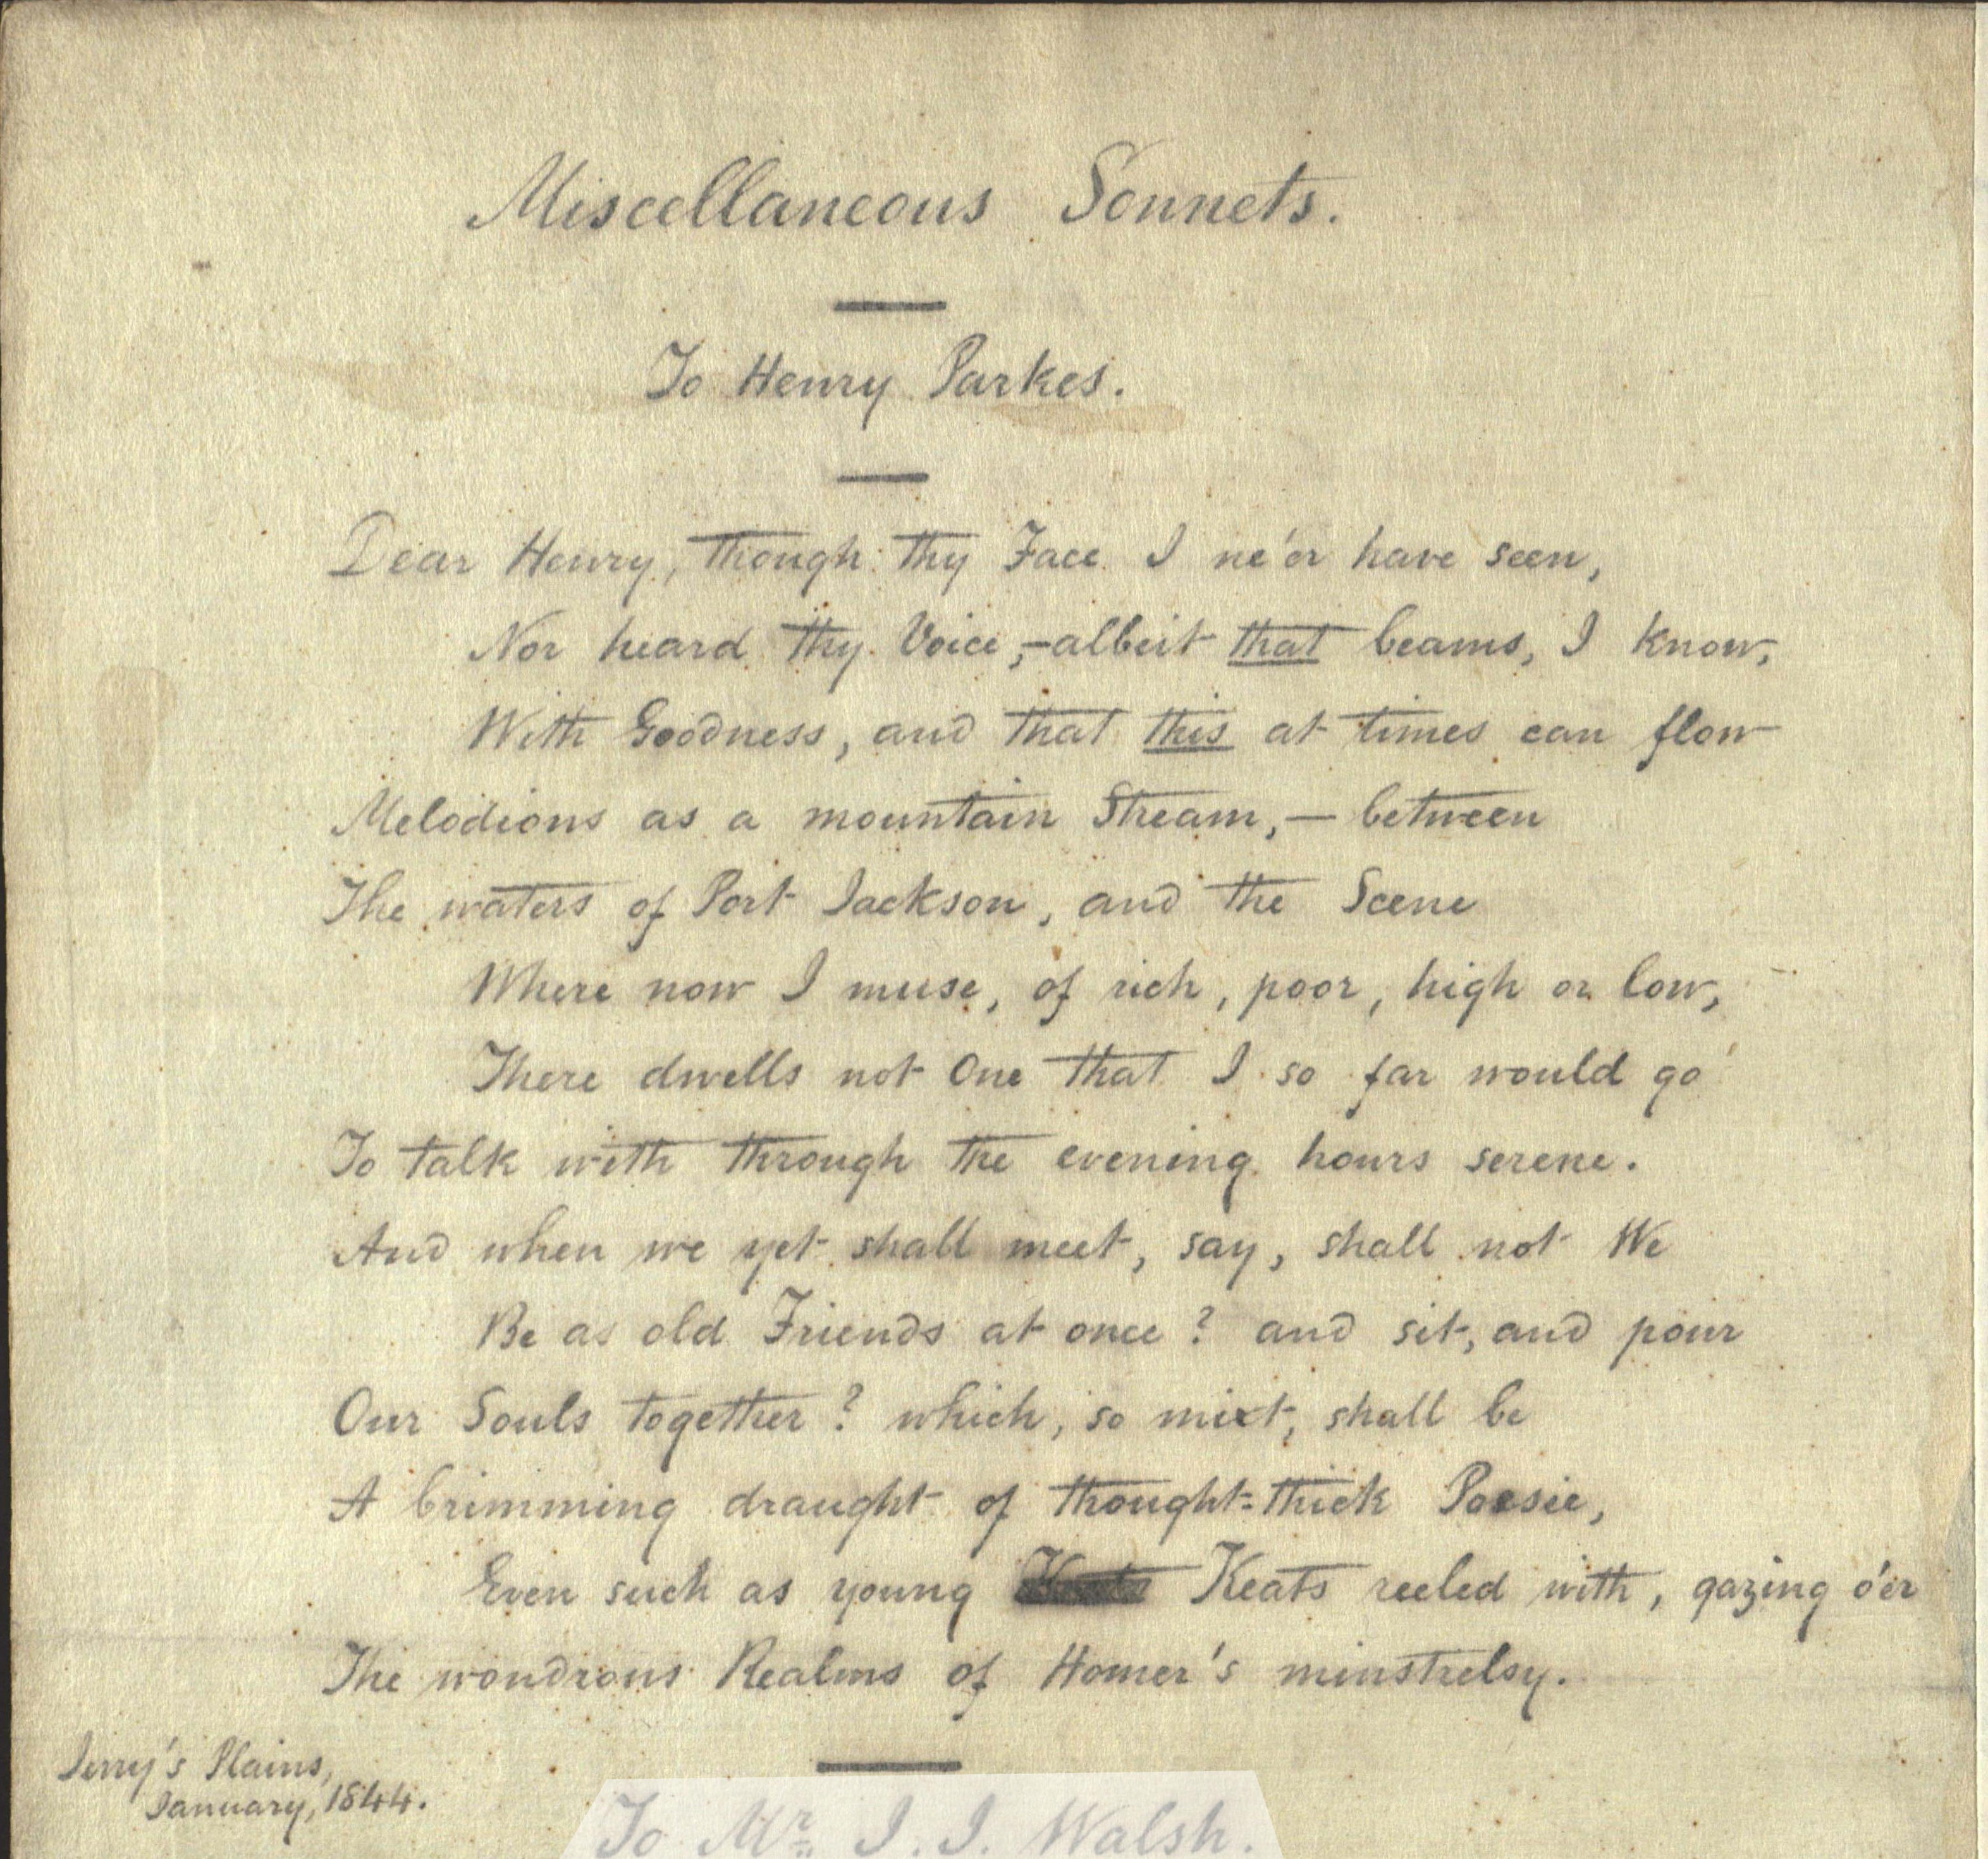 Miscellaneous Sonnets.
To Henry Parkes.
Dear Henry, though thy Face I ne'er have seen,
Nor heard thy Voice,—albeit that beams, I know,
With Goodness, and that this at times can flow
Melodious as a mountain Stream,— between
The waters of Port Jackson, and the Scene
Where now I muse, of rich, poor, high or low,
There dwells not One that I so far would go
To talk with through the evening hours serene.
And when we yet shall meet, say, shall not We
Be as old Friends at once? and sit, and pour
Our Souls together? which, so mixt, shall be
A brimming draught of thought-thick Poesie,
Even such as young Keats reeled with, gazing o'er
The wondrous Realms of Homer's minstrelsy.
Jerry's Plains,
January, 1844.
To Mr. J. J. Walsh.